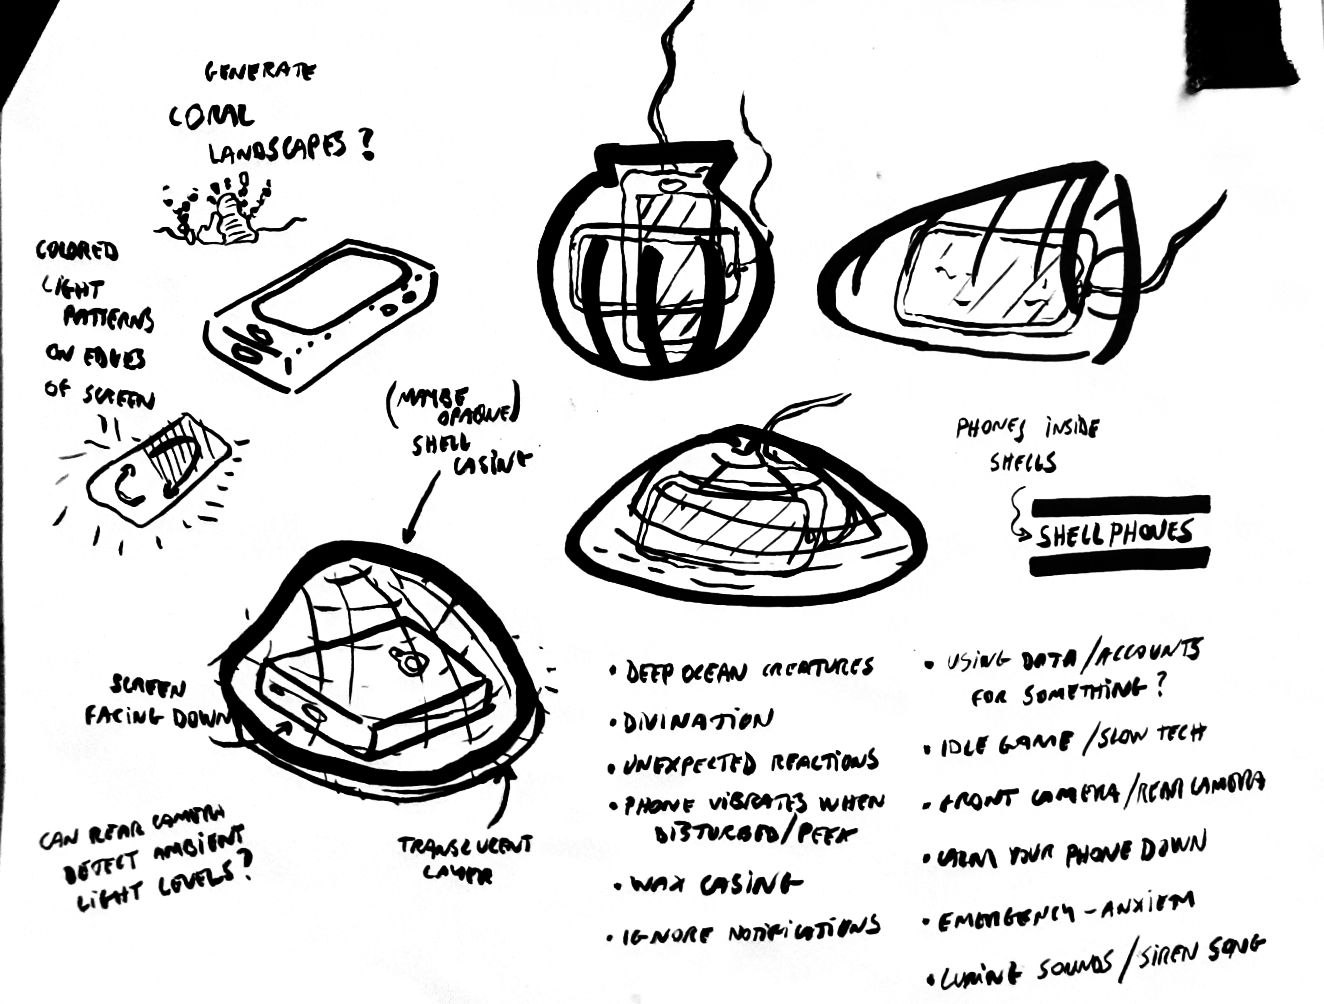 GENERATE
CORAL
LANDSCAPES?
COLORED
LIGHT
PATTERNS
ON EDGES
OF SCREEN
(MAYBE
OPAQUE)
SHELL
CASING
PHONES INSIDE
SHELLS
SHELLPHONES
SCREEN
FACING DOWN
CAN REAR CAMERA
DETECT AMBIENT
LIGHT LEVELS?
TRANSLUCENT
LAYER
• DEEP OCEAN CREATURES
• DIVINATION
• UNEXPECTED REACTIONS
• PHONE VIBRATES WHEN
DISTURBED/PEEK
• WAX CASING
• IGNORE NOTIFICATIONS
• USING DATA/ACCOUNTS
FOR SOMETHING?
• IDLE GAME/SLOW TECH
• FRONT CAMERA/REAR CAMERA
• CALM YOUR PHONE DOWN
• EMERGENCY-ANXIETY
• LURING SOUNDS/SIREN SONG